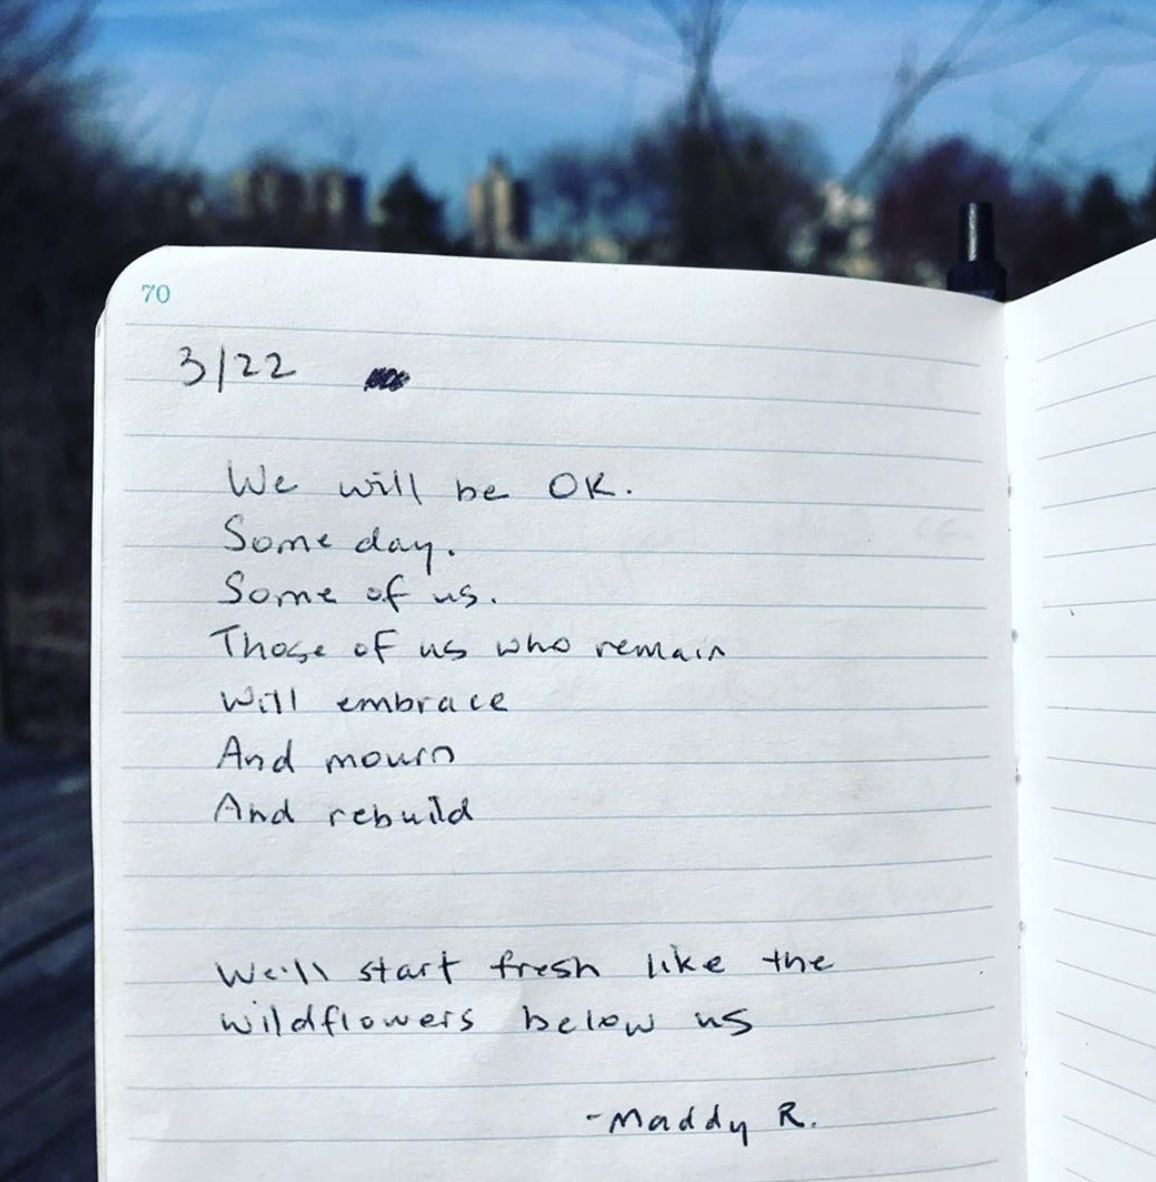 70
3/22
We will be OK.
Some day.
Some of us.
Those of us who remain
Will embrace
And mourn
And rebuild
We'll start fresh like the
wildflowers below us
-Maddy R.